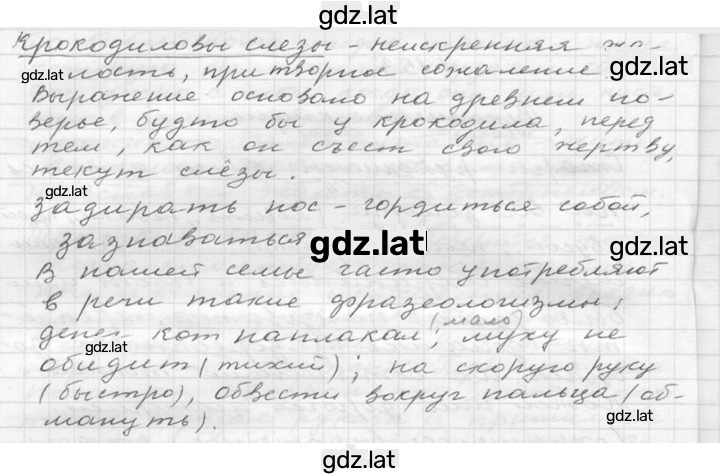 gdz.lat
Крокодиловы слезы - неискренняя жа-
gdz.lat лость, притворное сожаление gdz.lat
Выражение основано на древнем по-
верье, будто бы у крокодила, перед
тем, как он съест свою жертву,
текут слёзы.
gdz.lat
Задирать нос - гордиться собой,
зазнаваться gdz.lat gdz.lat
В нашей семье часто употребляют
в речи такие фразеологизмы:
денег кот наплакал (мало), муху не
gdz.lat
обидит (тихий); на скорую руку
(быстро), обвести вокруг пальца (об-
мануть). gdz.lat
gdz.lat